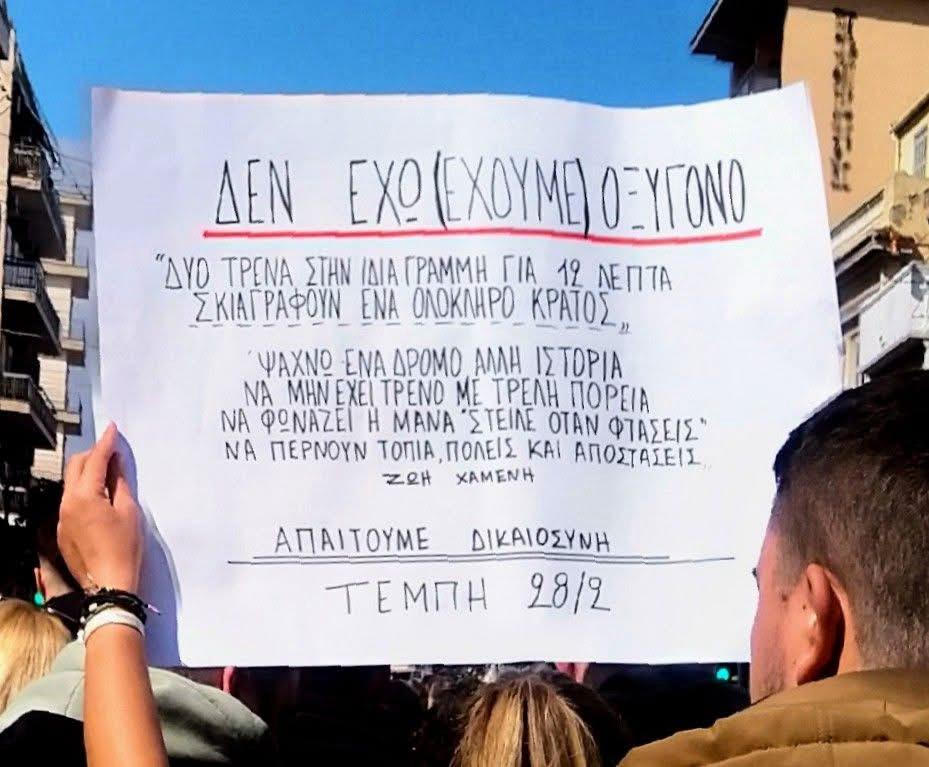 ΔΕΝ ΕΧΩ (ΕΧΟΥΜΕ) ΟΞΥΓΟΝΟ
"ΔΥΟ ΤΡΕΝΑ ΣΤΗΝ ΙΔΙΑ ΓΡΑΜΜΗ ΓΙΑ 12 ΛΕΠΤΑ
ΣΚΙΑΓΡΑΦΟΥΝ ΕΝΑ ΟΛΟΚΛΗΡΟ ΚΡΑΤΟΣ„
'ΨΑΧΝΩ ΕΝΑ ΔΡΟΜΟ ΑΛΛΗ ΙΣΤΟΡΙΑ
ΝΑ ΜΗΝ ΕΧΕΙ ΤΡΕΝΟ ΜΕ ΤΡΕΛΗ ΠΟΡΕΙΑ
ΝΑ ΦΩΝΑΖΕΙ Η ΜΑΝΑ "ΣΤΕΙΛΕ ΟΤΑΝ ΦΤΑΣΕΙΣ"
ΝΑ ΠΕΡΝΟΥΝ ΤΟΠΙΑ, ΠΟΛΕΙΣ ΚΑΙ ΑΠΟΣΤΑΣΕΙΣ„
ΖΩΗ ΧΑΜΕΝΗ
ΑΠΑΙΤΟΥΜΕ ΔΙΚΑΙΟΣΥΝΗ
ΤΕΜΠΗ 28/2